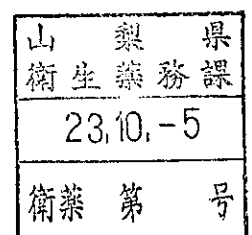 山梨県
衛生薬務課
23.10.-5
衛薬第 号